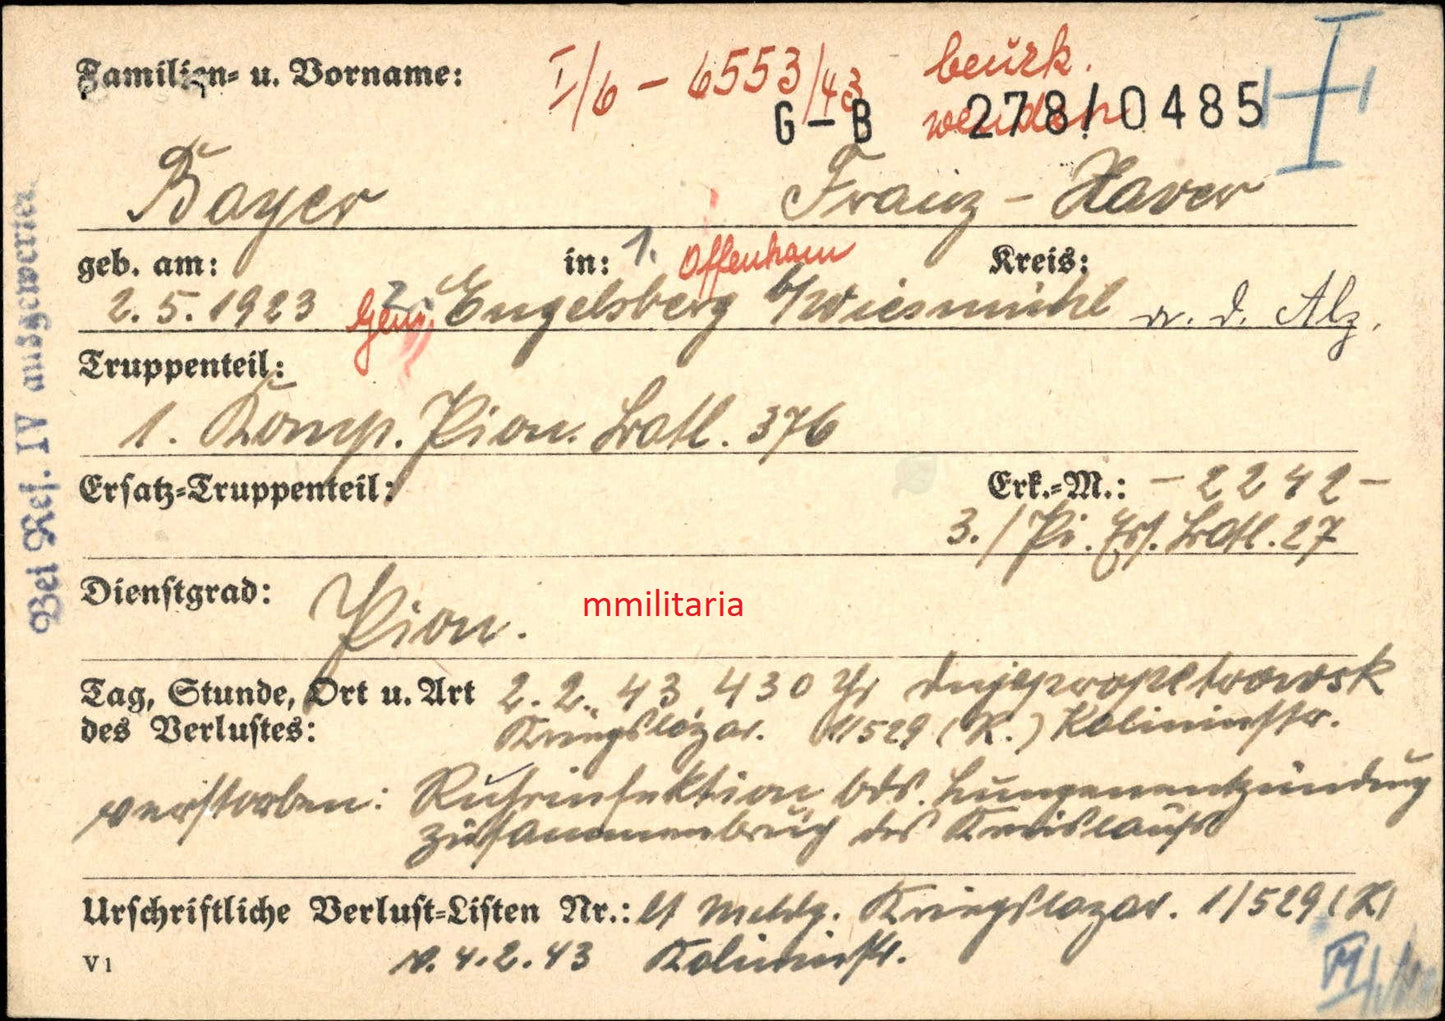 Familien- u. Vorname:
I/6 - 6553/43
beurk.
werden
G-B 278/0485
I
Bayer Franz-Xaver
geb. am: in: 1. Offenham Kreis:
2.5.1923 Gem. Engelsberg b/Wiesmühl a. d. Alz.
Truppenteil:
1. Komp. Pion. Batl. 376
Ersatz-Truppenteil: Erk.-M.: - 2242 -
3./Pi. Ers. Batl. 27
Dienstgrad:
Pion.
mmilitaria
Tag, Stunde, Ort u. Art 2.2.43 430 Uhr Dnjepropetrowsk
des Verlustes: Kriegslazar. 1/529 (R.) Kalininstr.
verstorben: Ruhrinfektion bds. Lungenentzündung
Zusammenbruch des Kreislaufs
Urschriftliche Verlust-Listen Nr.: lt Meldg. Kriegslazar. 1/529 (R)
V1 v. 4.2.43 Kalininstr.
Bei Ref. IV ausgewertet